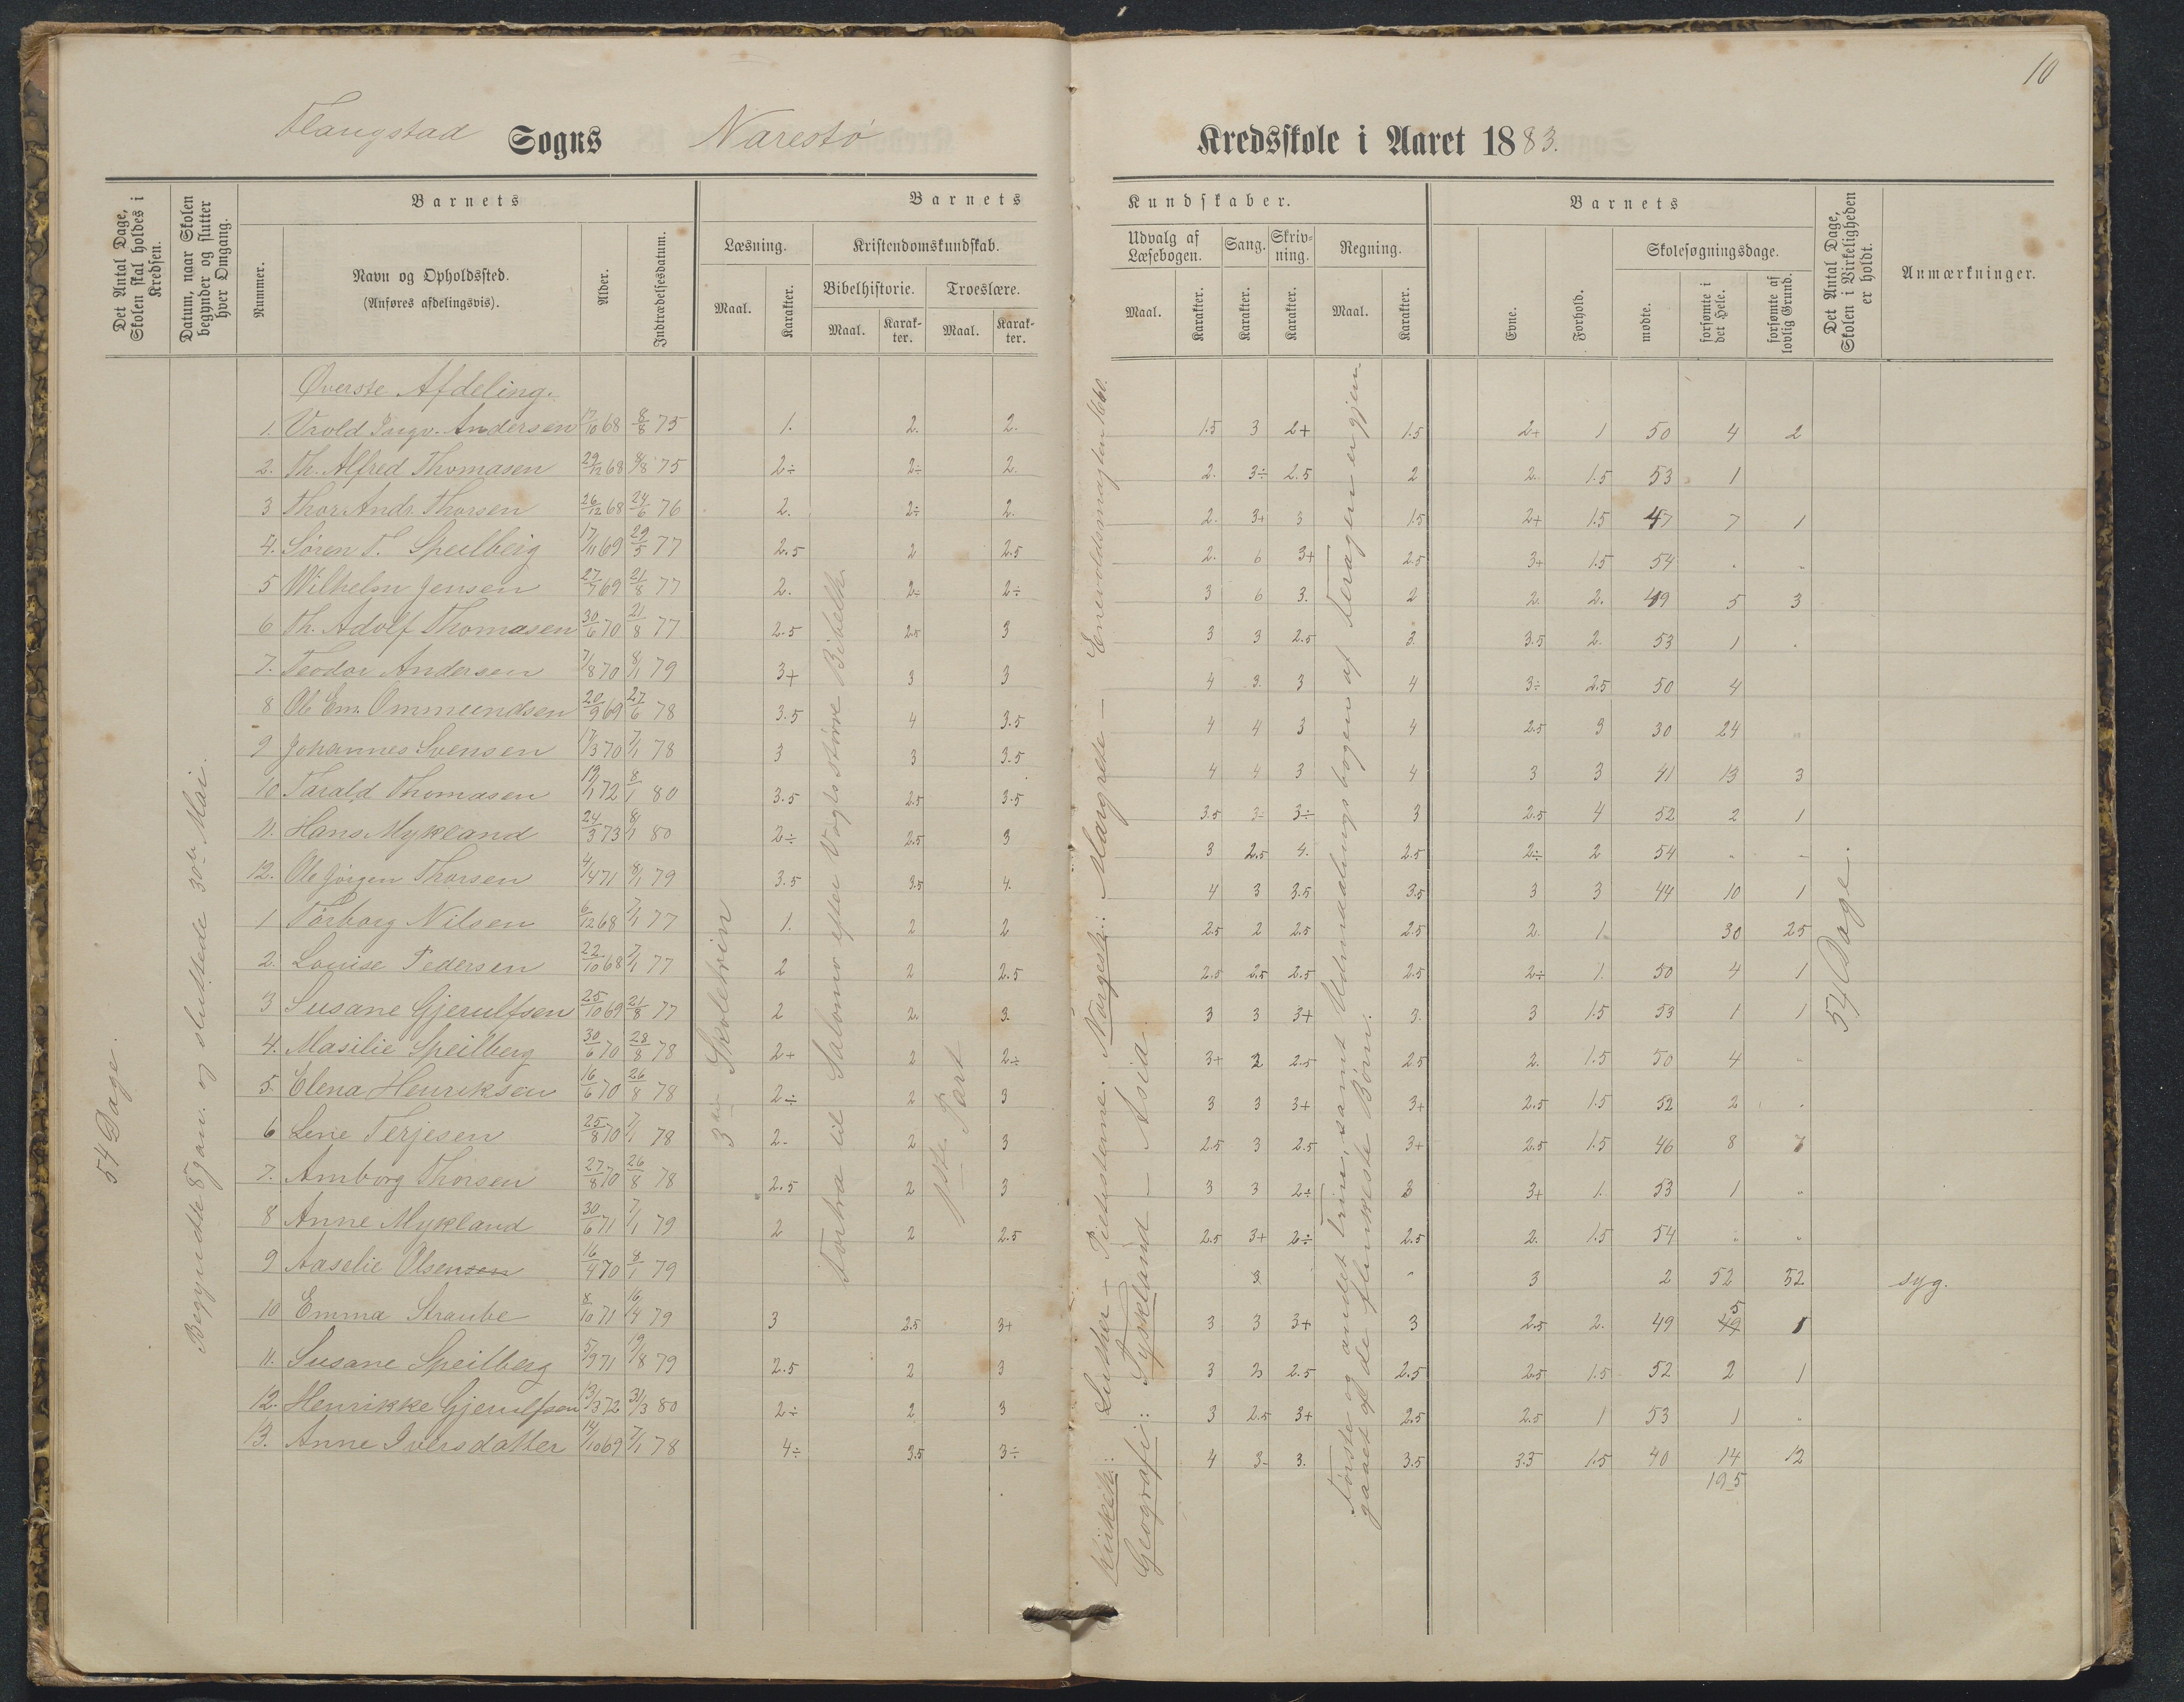 10
Flangstad Sogns Narestø Kredsskole i Aaret 1883.
Det Antal Dage, Skolen skal holdes i Kredsen.
Datum, naar Skolen begynder og slutter hver Omgang.
Nummer.
Barnets
Navn og Opholdssted. (Anføres afdelingsvis).
Alder.
Indtrædelsesdatum.
Barnets Kundskaber.
Læsning. Maal. Karakter.
Kristendomskundskab.
Bibelhistorie. Maal. Karakter.
Troeslære. Maal. Karakter.
Udvalg af Læsebogen. Maal. Karakter.
Sang. Karakter.
Skrivning. Karakter.
Regning. Maal. Karakter.
Barnets
Evne.
Forhold.
Skolesøgningsdage.
mødte.
forsømte i det Hele.
forsømte af lovlig Grund.
Det Antal Dage, Skolen i Virkeligheden er holdt.
Anmærkninger.
54 Dage.
Begyndte 8 Jan. og sluttede 30te Mai.
3die Skoletrin
Fortra til Salomo efter Vogts større Bibelh.
1ste Part
Kirkeh: Luther – Pietisterne. Norgesh: Margrete – Enevoldsmagten 1660.
Geografi: Tyskland – Asia.
Første og andet Trin, samt Udmaalingsbogens af Foragen er gjennemgaaet af de flinkeste Børn.
54 Dage.
Øverste Afdeling.
1. Vrold Ingv. Andersen 17/10 68 8/8 75 1. 2. 2. 1.5 3 2+ 1.5 2+ 1 50 4 2
2. Th. Alfred Thomasen 29/12 68 8/8 75 2÷ 2÷ 2. 2. 3÷ 2.5 2 2. 1.5 53 1
3 Thor Andr. Thorsen 26/12 68 24/6 76 2. 2÷ 2. 2. 3+ 3 1.5 2+ 1.5 47 7 1
4. Søren T. Speilberg 17/11 69 29/5 77 2.5 2 2.5 2. 6 3+ 2.5 3+ 1.5 54 . .
5 Wilhelm Jensen 27/7 69 21/8 77 2. 2÷ 2÷ 3 6 3. 2 2. 2. 49 5 3
6 Th. Adolf Thomasen 30/6 70 21/8 77 2.5 2.5 3 3 3 2.5 3. 3.5 2. 53 1 .
7. Teodor Andersen 7/8 70 8/1 79 3+ 3 3 4 3. 3 4 3÷ 2.5 50 4
8 Ole Em. Ommundsen 20/9 69 27/6 78 3.5 4 3.5 4 4 3 4 2.5 3 30 24 "
9 Johannes Svensen 17/3 70 7/1 78 3 3 3.5 4 4 3 4 3 3 41 13 3
10 Tarald Thomasen 19/1 72 8/1 80 3.5 2.5 3.5 3.5 3÷ 3÷ 3 2.5 4 52 2 1
11. Hans Mykland 24/3 73 8/1 80 2÷ 2.5 3 3 2.5 4. 2.5 2÷ 2 54 " –
12. Ole Jørgen Thorsen 4/4 71 8/1 79 3.5 3.5 4. 4 3 3.5 3.5 3 3 44 10 1
1 Torborg Nilsen 6/12 68 7/1 77 1. 2 2 2.5 2 2.5 2.5 2. 1. 30 25
2. Louise Pedersen 22/10 68 7/1 77 2 2 2.5 2.5 2.5 2.5 2.5 2÷ 1. 50 4 1
3 Susane Gjerulfsen 25/10 69 21/8 77 2 2. 3. 3 3 3+ 3. 3 1.5 53 1 1
4. Masilie Speilberg 30/6 70 28/8 78 2+ 2 2÷ 3+ 2 2.5 2.5 2. 1.5 50 4 "
5. Elena Henriksen 16/6 70 26/8 78 2÷ 2 3 3 3 3+ 3+ 2.5 1.5 52 2 .
6 Lene Terjesen 25/8 70 7/1 78 2- 2 3 2.5 3 2.5 3+ 2.5 1.5 46 8
7. Amborg Thorsen 27/8 70 26/8 78 2.5 2 3 3 3 2÷ 3 3+ 1. 53 1 "
8 Anne Mykland 30/6 71 7/1 79 2 2 2.5 2.5 3+ 2÷ 2.5 2. 1.5 54 " "
9 Aaselie Olsensen 16/4 70 8/1 79 3 " 3 2 52 52 syg.
10. Emma Straube 8/10 71 16/4 79 3 2.5 3+ 3 3 3+ 3 2.5 2. 49 49 5 1
11. Susane Speilberg 5/9 71 19/8 79 2.5 2 3 3 3 2.5 2.5 2.5 1.5 52 2 1
12. Henrikke Gjerulfsen 13/3 72 31/3 80 2÷ 2 3 3 2.5 3+ 2.5 2.5 1 53 1 "
13. Anne Iversdatter 14/10 69 7/1 78 4÷ 3.5 3÷ 4 3- 3. 3.5 3.5 1.5 40 14 12
195